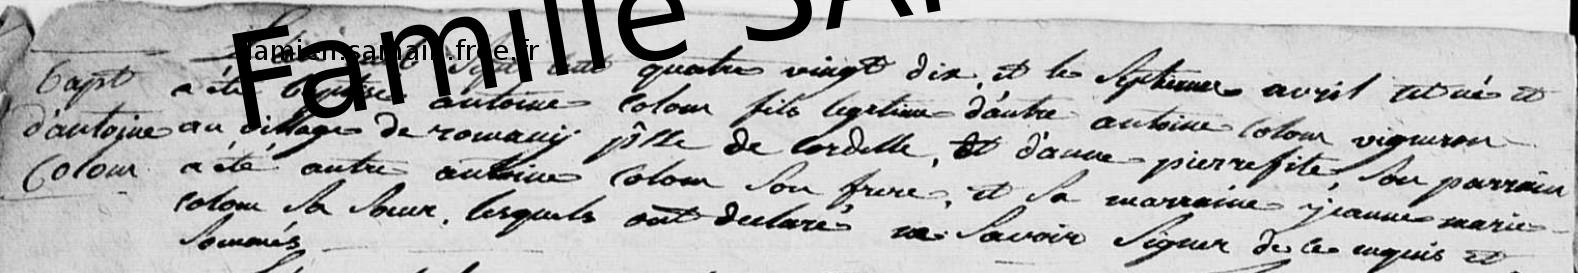 Famille SA
damien.samain.free.fr
L'an mil Sept cent quatre vingt dix, et le Septieme avril est né et
Bapt
a été Baptisé antoine Colom fils legitime d'autre antoine Colom vigneron
d'antoine
au village de romany psse de Cordelle, et d'anne pierrefite, Son parrain
Colom
a été autre antoine Colom Son frere, et Sa marraine jeanne marie
Colom Sa Sœur, lesquels ont declaré ne Savoir Signer de ce enquis et
Sommés